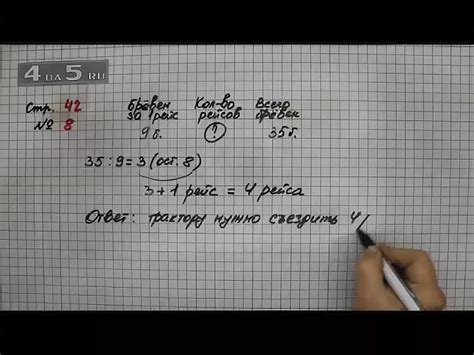 4 ДА 5.RU
Стр. 42
№ 8
бревен за 1 рейс
Кол-во рейсов
Всего брёвен
9 б.
?
35 б.
35 : 9 = 3 (ост. 8)
3 + 1 рейс = 4 рейса
Ответ: трактору нужно съездить 4